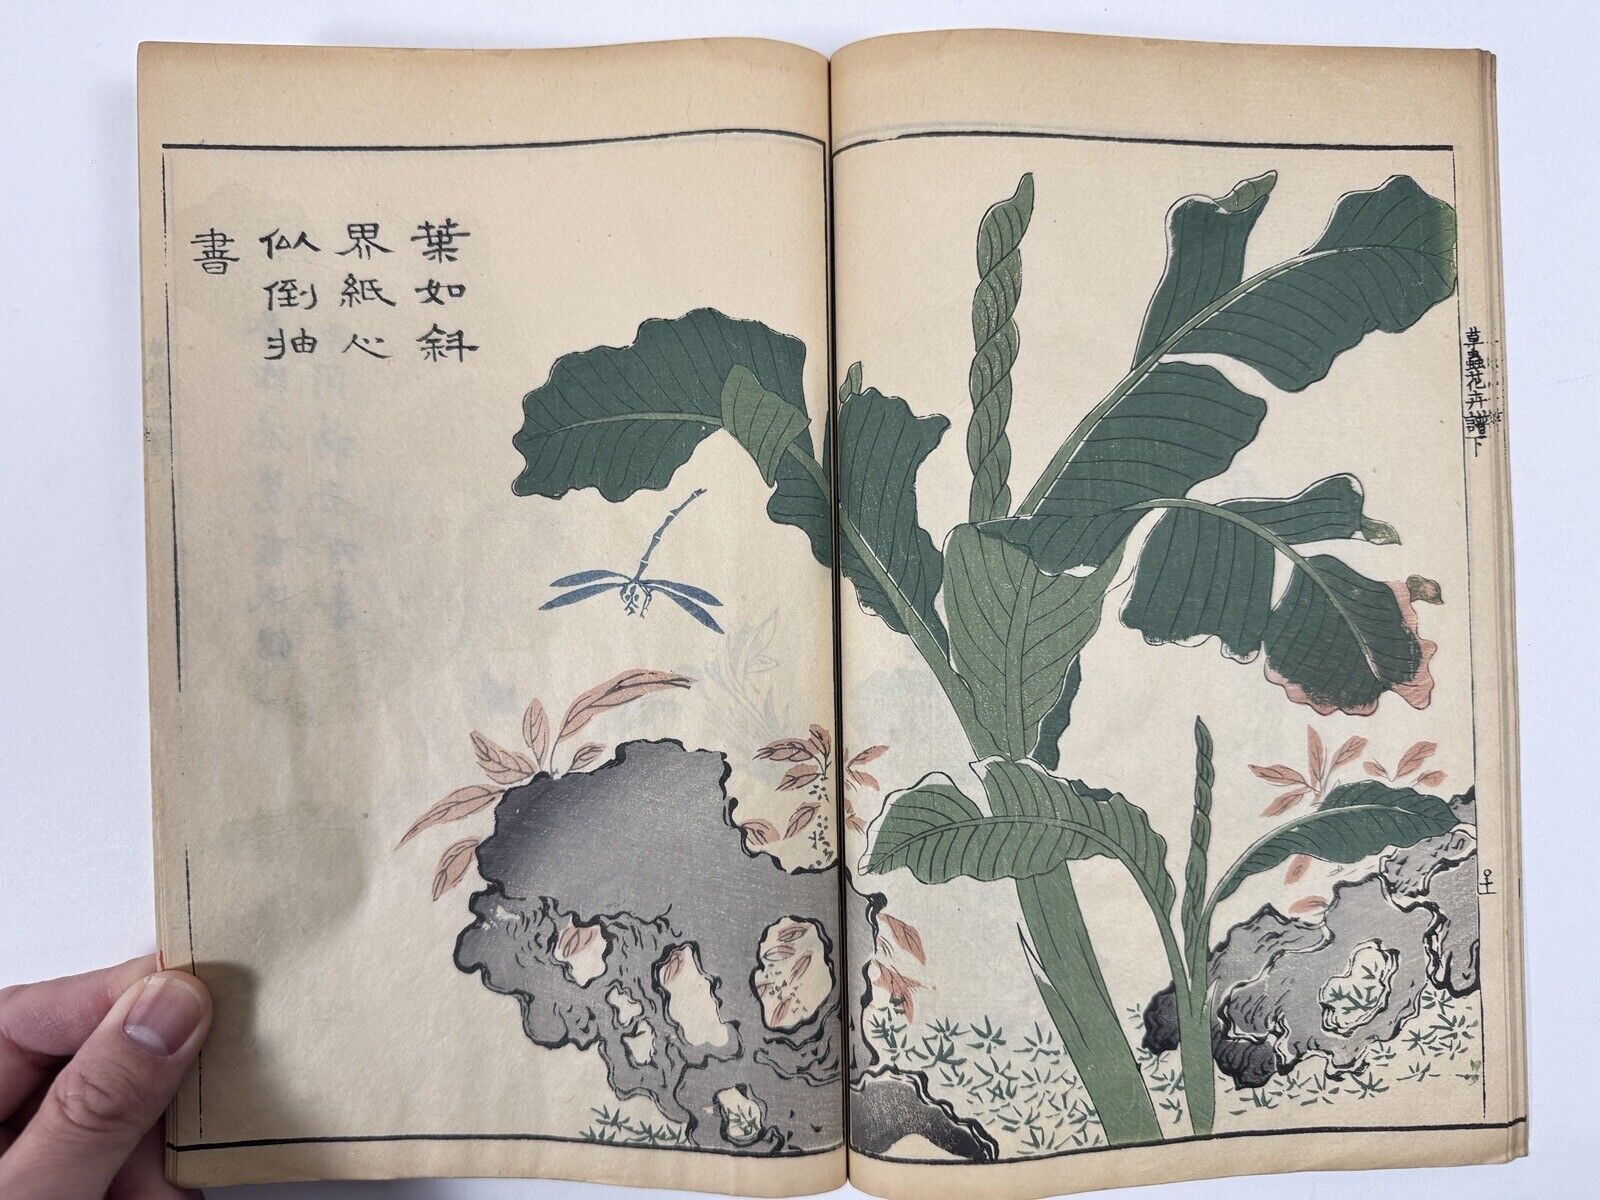 葉如斜
界紙心
似倒抽
書
草蟲花卉譜下